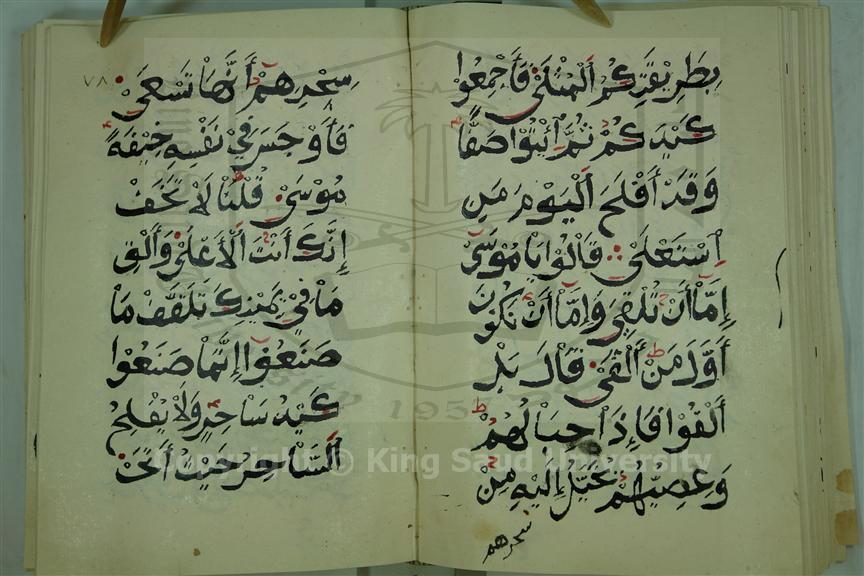 بِطَرِيقَتِكُمُ الْمُثْلَىٰ فَأَجْمِعُوا
كَيْدَكُمْ ثُمَّ ائْتُوا صَفًّا
وَقَدْ أَفْلَحَ الْيَوْمَ مَنِ
اسْتَعْلَىٰ قَالُوا يَا مُوسَىٰ
إِمَّا أَنْ تُلْقِيَ وَإِمَّا أَنْ نَكُونَ
أَوَّلَ مَنْ أَلْقَىٰ قَالَ بَلْ
أَلْقُوا فَإِذَا حِبَالُهُمْ
وَعِصِيُّهُمْ يُخَيَّلُ إِلَيْهِ مِنْ
سحرهم
٧٨
سِحْرِهِمْ أَنَّهَا تَسْعَىٰ
فَأَوْجَسَ فِي نَفْسِهِ خِيفَةً
مُوسَىٰ قُلْنَا لَا تَخَفْ
إِنَّكَ أَنْتَ الْأَعْلَىٰ وَأَلْقِ
مَا فِي يَمِينِكَ تَلْقَفْ مَا
صَنَعُوا إِنَّمَا صَنَعُوا
كَيْدُ سَاحِرٍ وَلَا يُفْلِحُ
السَّاحِرُ حَيْثُ أَتَىٰ
1957
Copyright © King Saud University